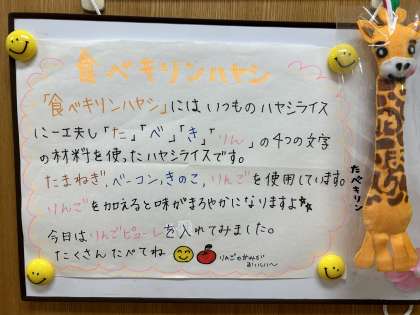 食べキリンハヤシ
「食べキリンハヤシ」にはいつものハヤシライス
に一工夫し「た」「べ」「き」「りん」の4つの文字
の材料を使ったハヤシライスです。
たまねぎ、ベーコン、きのこ、りんごを使用しています。
りんごを加えると味がまろやかになりますよ
今日はりんごピューレを入れてみました。
たくさんたべてね
りんごの
おいしい〜
たべキリン